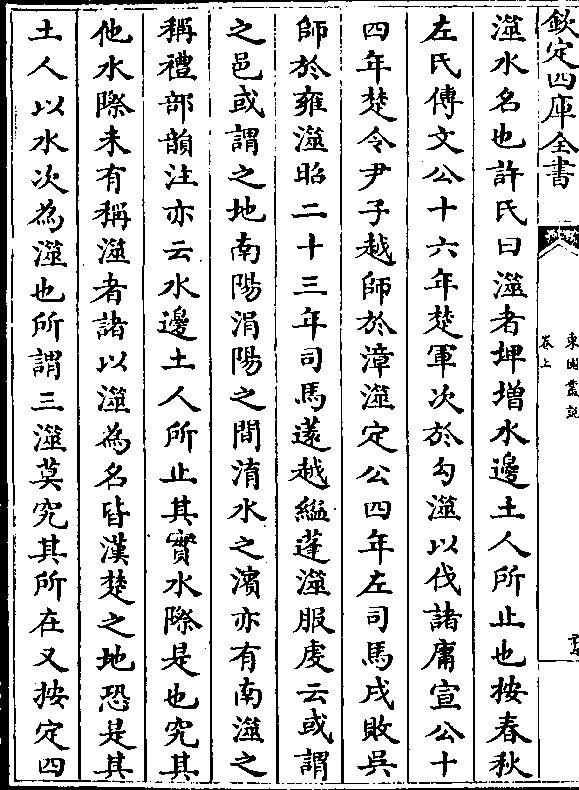 欽定四庫全書
東園叢說
卷上
澨水名也許氏曰澨者埤增水邊土人所止也按春秋
左氏傳文公十六年楚軍次於勾澨以伐諸庸宣公十
四年楚令尹子越師於漳澨定公四年左司馬戌敗吳
師於雍澨昭二十三年司馬薳越縊蓬澨服虔云或謂
之邑或謂之地南陽涓陽之間淯水之濱亦有南澨之
稱禮部韻注亦云水邊土人所止其實水際是也究其
他水際未有稱澨者諸以澨為名皆漢楚之地恐是其
土人以水次為澨也所謂三澨莫究其所在又按定四